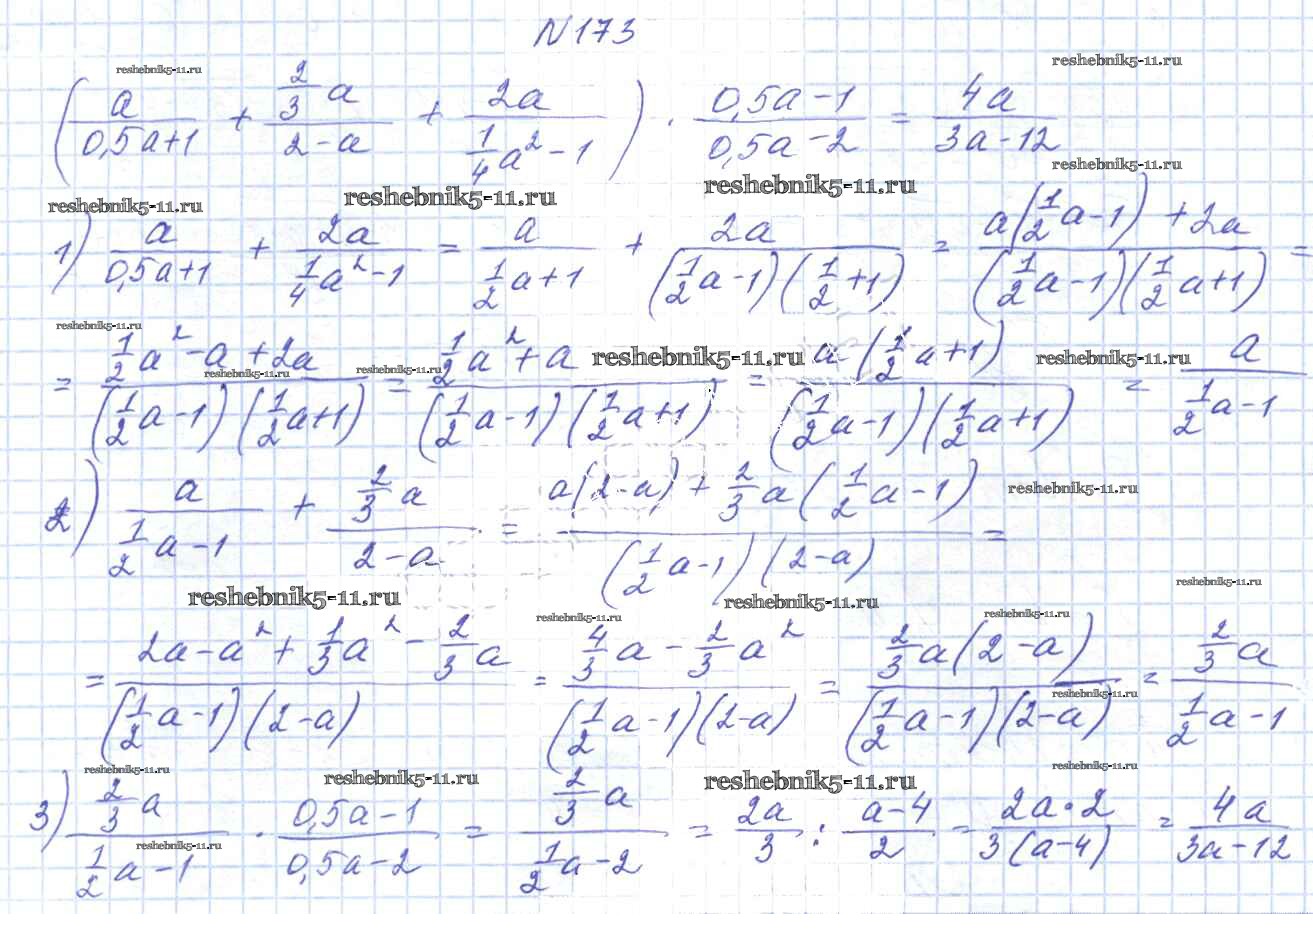 N173
reshebnik5-11.ru reshebnik5-11.ru
(a/(0,5a+1) + (2/3 a)/(2-a) + 2a/(1/4 a² - 1)) · (0,5a-1)/(0,5a-2) = 4a/(3a-12)
reshebnik5-11.ru reshebnik5-11.ru reshebnik5-11.ru reshebnik5-11.ru
1) a/(0,5a+1) + 2a/(1/4 a² - 1) = a/(1/2 a+1) + 2a/((1/2 a-1)(1/2 +1)) = (a(1/2 a-1) + 2a)/((1/2 a-1)(1/2 a+1)) =
reshebnik5-11.ru reshebnik5-11.ru reshebnik5-11.ru reshebnik5-11.ru reshebnik5-11.ru
= (1/2 a² - a + 2a)/((1/2 a-1)(1/2 a+1)) = (1/2 a² + a)/((1/2 a-1)(1/2 a+1)) = a(1/2 a+1)/((1/2 a-1)(1/2 a+1)) = a/(1/2 a-1)
2) a/(1/2 a-1) + (2/3 a)/(2-a) = (a(2-a) + 2/3 a(1/2 a-1))/((1/2 a-1)(2-a)) =
reshebnik5-11.ru
reshebnik5-11.ru reshebnik5-11.ru reshebnik5-11.ru reshebnik5-11.ru reshebnik5-11.ru
= (2a - a² + 1/3 a² - 2/3 a)/((1/2 a-1)(2-a)) = (4/3 a - 2/3 a²)/((1/2 a-1)(2-a)) = 2/3 a(2-a)/((1/2 a-1)(2-a)) = (2/3 a)/(1/2 a-1)
reshebnik5-11.ru
reshebnik5-11.ru reshebnik5-11.ru reshebnik5-11.ru reshebnik5-11.ru
3) (2/3 a)/(1/2 a-1) · (0,5a-1)/(0,5a-2) = (2/3 a)/(1/2 a-2) = 2a/3 : (a-4)/2 = 2a·2/(3(a-4)) = 4a/(3a-12)
reshebnik5-11.ru